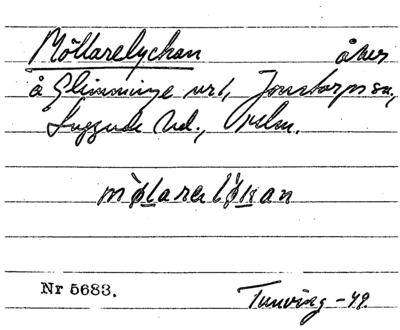 Möllarelyckan åker
å Glimminge nr 1, Jonstorps sn,
Luggude hd.,
mö̀llarelỳkan
Nr 5683.
Tunving -49.